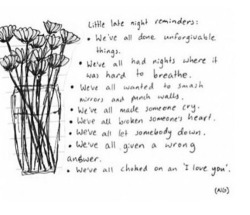 Little late night reminders:
• We've all done unforgivable
things.
• We've all had nights where it
was hard to breathe.
• We've all wanted to smash
mirrors and punch walls.
• We've all made someone cry.
• We've all broken someone's heart.
• We've all let somebody down.
• We've all given a wrong
answer.
• We've all choked on an 'I love you'.